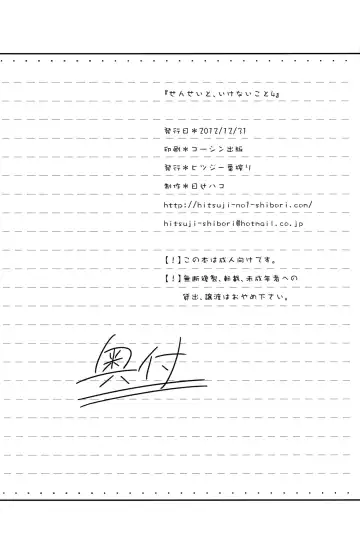 『せんせいと、いけないこと4』
発行日＊2012/12/31
印刷＊コーシン出版
発行＊ヒツジ一番搾り
制作＊日せハコ
http://hitsuji-no1-shibori.com/
hitsuji-shibori@hotmail.co.jp
【！】この本は成人向けです。
【！】無断複製、転載、未成年者への
貸出、譲渡はおやめ下さい。
奥付